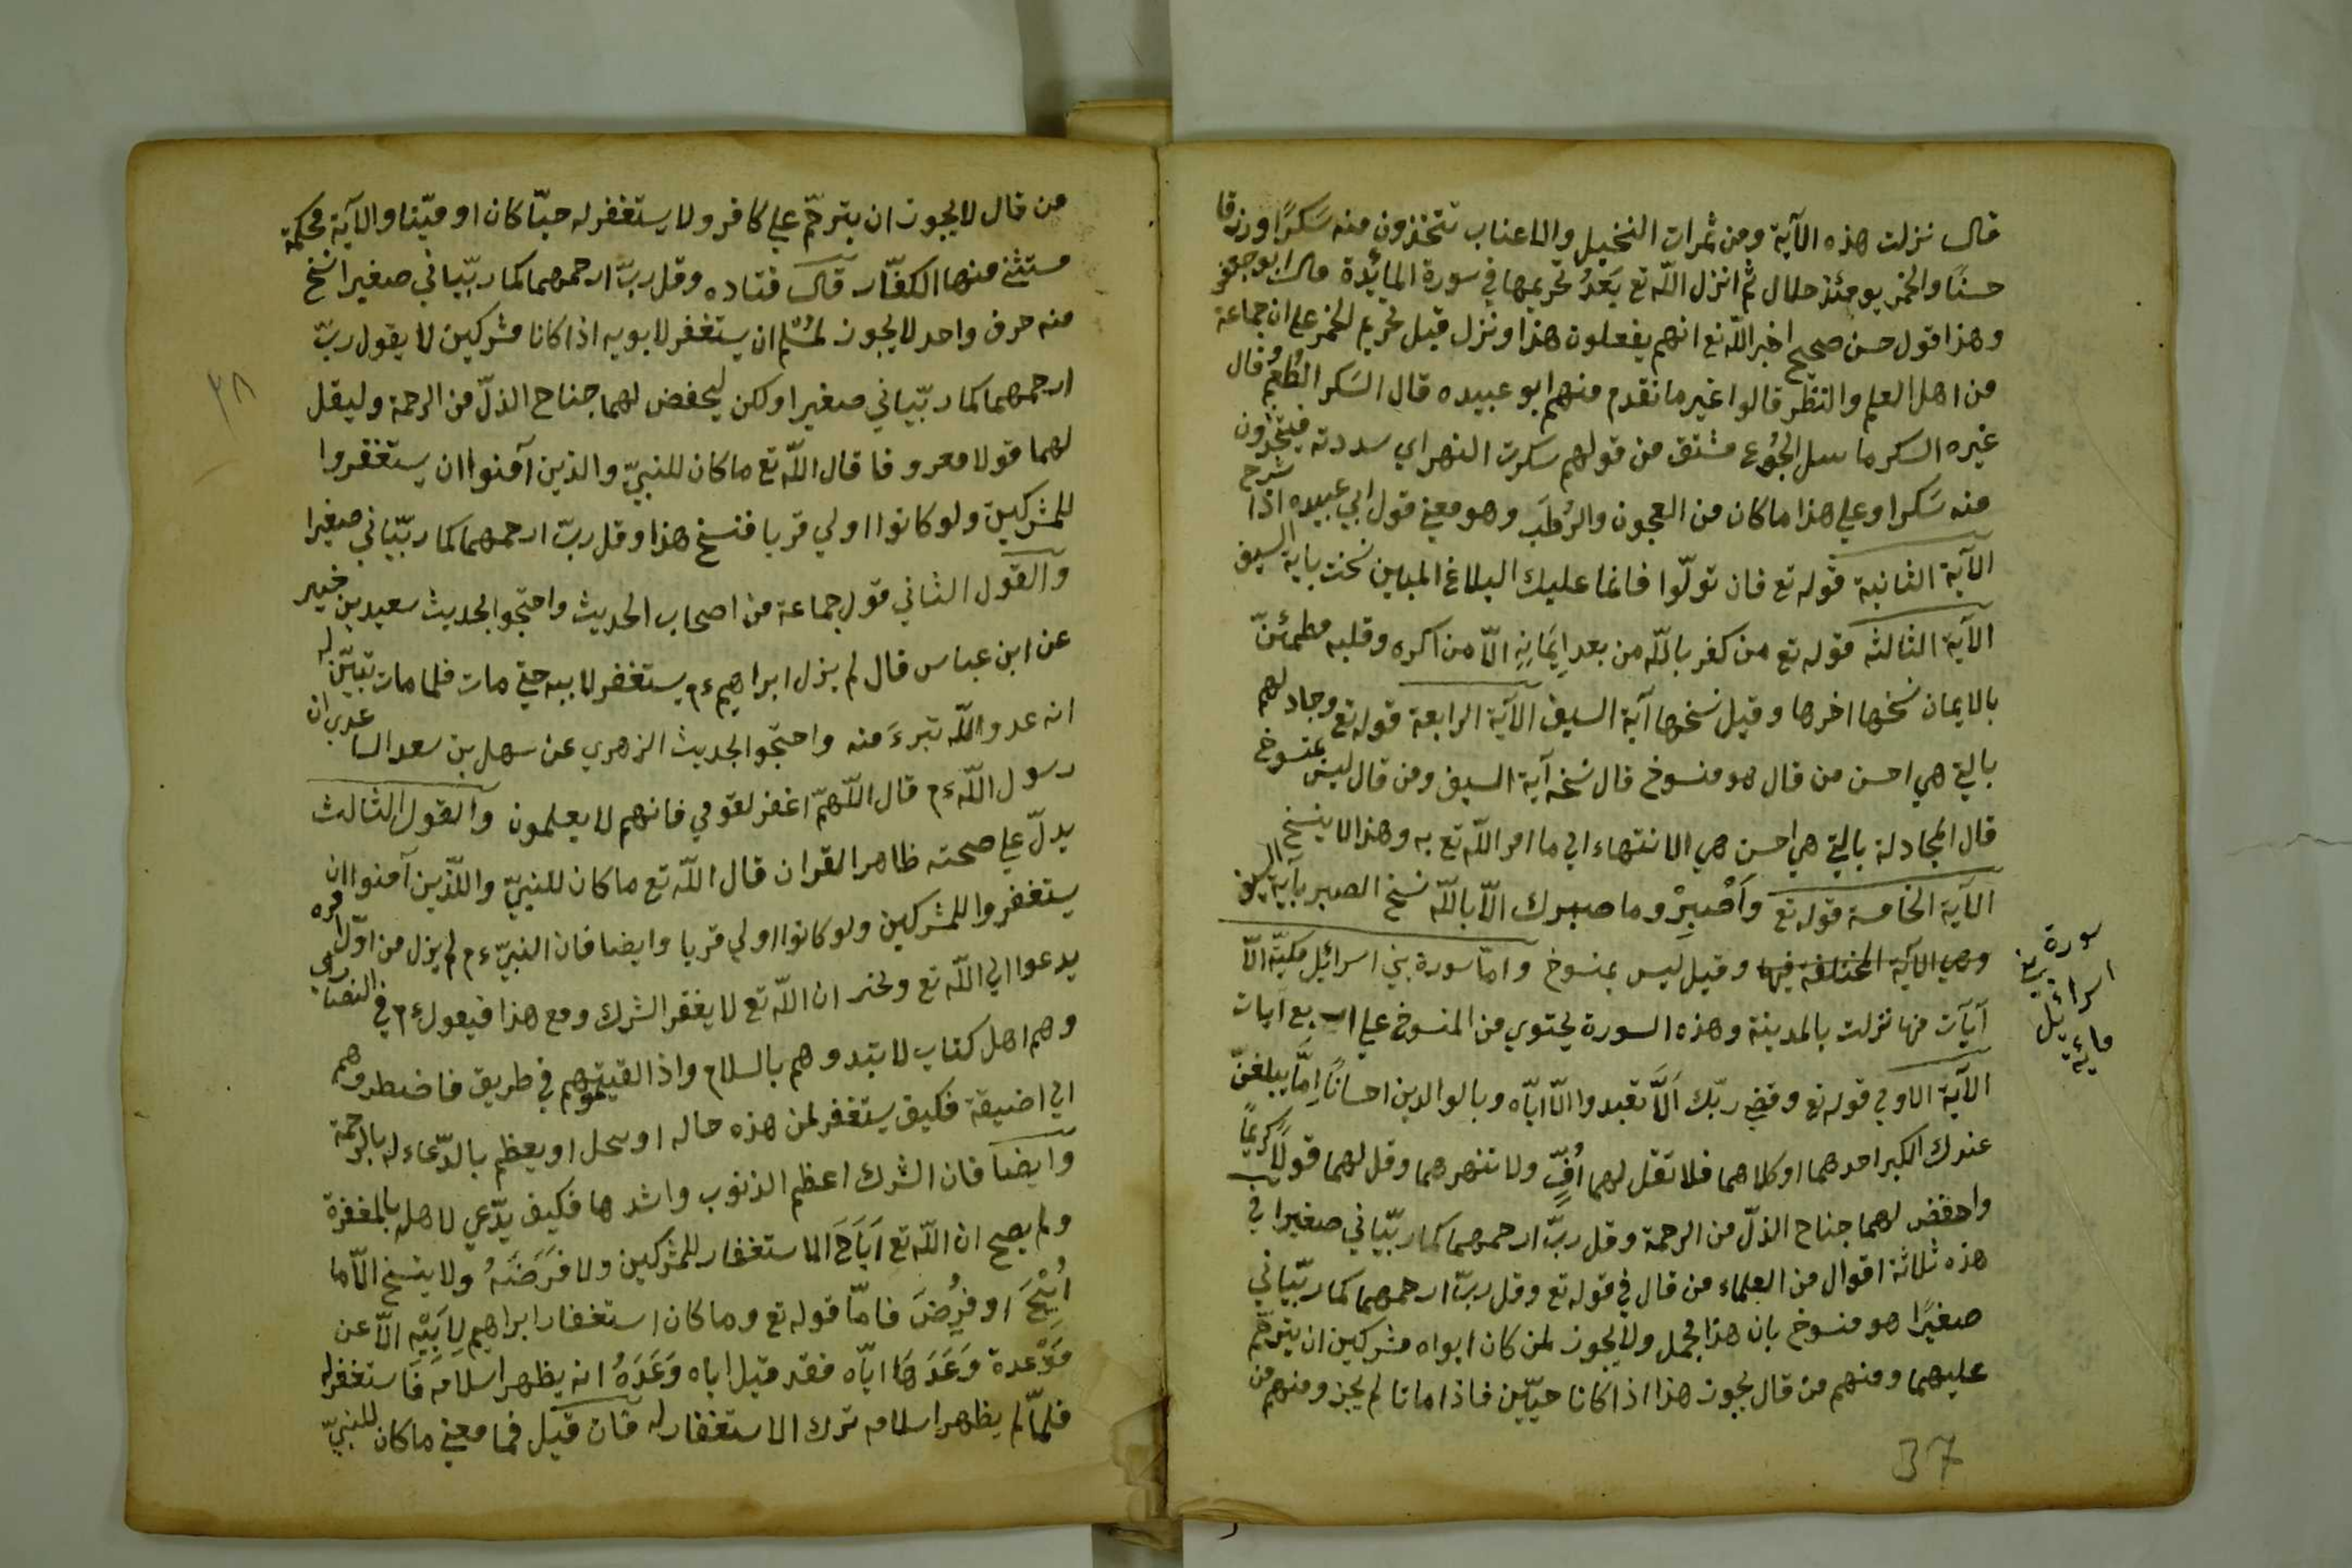 قال نزلت هذه الآية ومن ثمرات النخيل والاعناب تتخذون منه سَكرًا ورزقا
حسنًا والخمر يومئذ حلال ثم انزل اللّه تع بَعدُ تحريمها في سورة المائدة قال ابو جعفر
وهذا قول حسن صحيح اخبر اللّه تع انهم يفعلون هذا ونزل قبل تحريم الخمر على ان جماعة
من اهل العلم والنظر قالوا غير ما تقدم منهم ابو عبيده قال السَكر الطُعْم وقال
غيره السكر ما سل الجُوع مشتق من قولهم سكرت النهر اي سددته فيتخذون
منه سَكرا وعلى هذا ما كان من العجون والرُطَب وهو معنى قول ابي عبيده اذا شرح
الآية الثانية قوله تع فان تولّوا فانما عليك البلاغ المبين نخت باية السيف
الآية الثالثه قوله تع من كفر باللّه من بعد إيمَانِهِ الاّ من اكره وقلبه مطمئنّ
بالايمان نسخها اخرها وقيل نسخها آية السيف الآية الرابعة قوله تع وجادلهم
بالتي هي احسن من قال هو منسوخ قال نسخه آية السيف ومن قال ليس بمنسوخ
قال المجادلة بالتي هي احسن هي الانتهاء الى ما امر اللّه تع به وهذا لا ينسخ
الآية الخامسة قوله تع وَاصْبِرْ وما صبرك الاّ باللّه نسخ الصبر بآية السيف
وهي الآية المختلفة فيها وقيل ليس بمنسوخ وامّا سورة بني اسرائيل مكيّة الاّ
آيات منها نزلت بالمدينة وهذه السورة يحتوي من المنسوخ على اربع آيات
سورة بني
اسرائيل
مائة
الآية الاولى قوله تع وقضى ربّك اَلاّ تعبدوا الاّ ايّاه وبالوالدين احسانًا إمّا يبلغنّ
عندك الكبر احدهما او كلاهما فلا تقل لهما اُفٍّ ولا تنهرهما وقل لهما قولًا كريمًا
واخفض لهما جناح الذلّ من الرحمة وقل ربّ ارحمهما كما ربّياني صغيرا في
هذه ثلاثة اقوال من العلماء من قال في قوله تع وقل ربّ ارحمهما كما ربّياني
صغيرًا هو منسوخ بان هذا مجمل ولا يجوز لمن كان ابواه مشركين ان يترحّم
عليهما ومنهم من قال يجوز هذا اذا كانا حيّين فاذا ماتا لم يجز ومنهم من
37
٣٨
من قال لا يجوز ان يترحّم على كافر ولا يستغفر له حيّا كان او ميّتا والآية محكمة
مستثنى منها الكفّار قال قتاده وقل ربّ ارحمهما كما ربّياني صغيرا نسخ
منه حرف واحد لا يجوز لمُسْلم ان يستغفر لابويه اذا كانا مشركين لا يقول ربّ
ارحمهما كما ربّياني صغيرا ولكن ليخفض لهما جناح الذلّ من الرحمة وليقل
لهما قولا معروفا قال اللّه تع ما كان للنبيّ والذين آمنوا ان يستغفروا
للمشركين ولو كانوا اولي قربا فنسخ هذا وقل ربّ ارحمهما كما ربّياني صغيرا
والقول الثاني قول جماعة من اصحاب الحديث واحتجوا لحديث سعيد بن خبير
عن ابن عباس قال لم يزل ابراهيم ءم يستغفر لابيه حتى مات فلما مات تبيّن له
انه عدو اللّه تبرءَ منه واحتجوا لحديث الزهري عن سهل بن سعد الساعدي ان
رسول اللّه ءم قال اللّهمّ اغفر لقومي فانهم لا يعلمون والقول الثالث
يدلّ على صحته ظاهر القران قال اللّه تع ما كان للنبيّ واللّذين آمنوا ان
يستغفروا للمشركين ولو كانوا اولي قربا وايضا فان النبيّ ءم لم يزل من اوّل امره
يدعوا الى اللّه تع ويخبر ان اللّه تع لا يغفر الشرك ومع هذا فيقول ءم في النصارى
وهم اهل كتاب لا بتدوهم بالسلام واذا لقيتموهم في طريق فاضطروهم
الى اضيقة فكيف يستغفر لمن هذه حاله او يحل او يعظم بالدّعاء له بالرحمة
وايضا فان الشرك اعظم الذنوب واشدها فكيف يدّعي لاهله بالمغفرة
ولم يصح ان اللّه تع اَبَاحَ الاستغفار للمشركين ولا فَرَضَهُ ولا ينسخ الاّ ما
اُبِيْحَ او فُرِضَ فامّا قوله تع وما كان استغفار ابراهيم لِاَبِيْهِ الاّ عن
مَوْعدة وَعَدَهَا ايّاه فقد قيل اباه وَعَدَهُ انه يظهر اسلامَه فَاستغفر له
فلمّا لم يظهر اسلامه ترك الاستغفار له فان قيل فما معنى ما كان للنبيّ